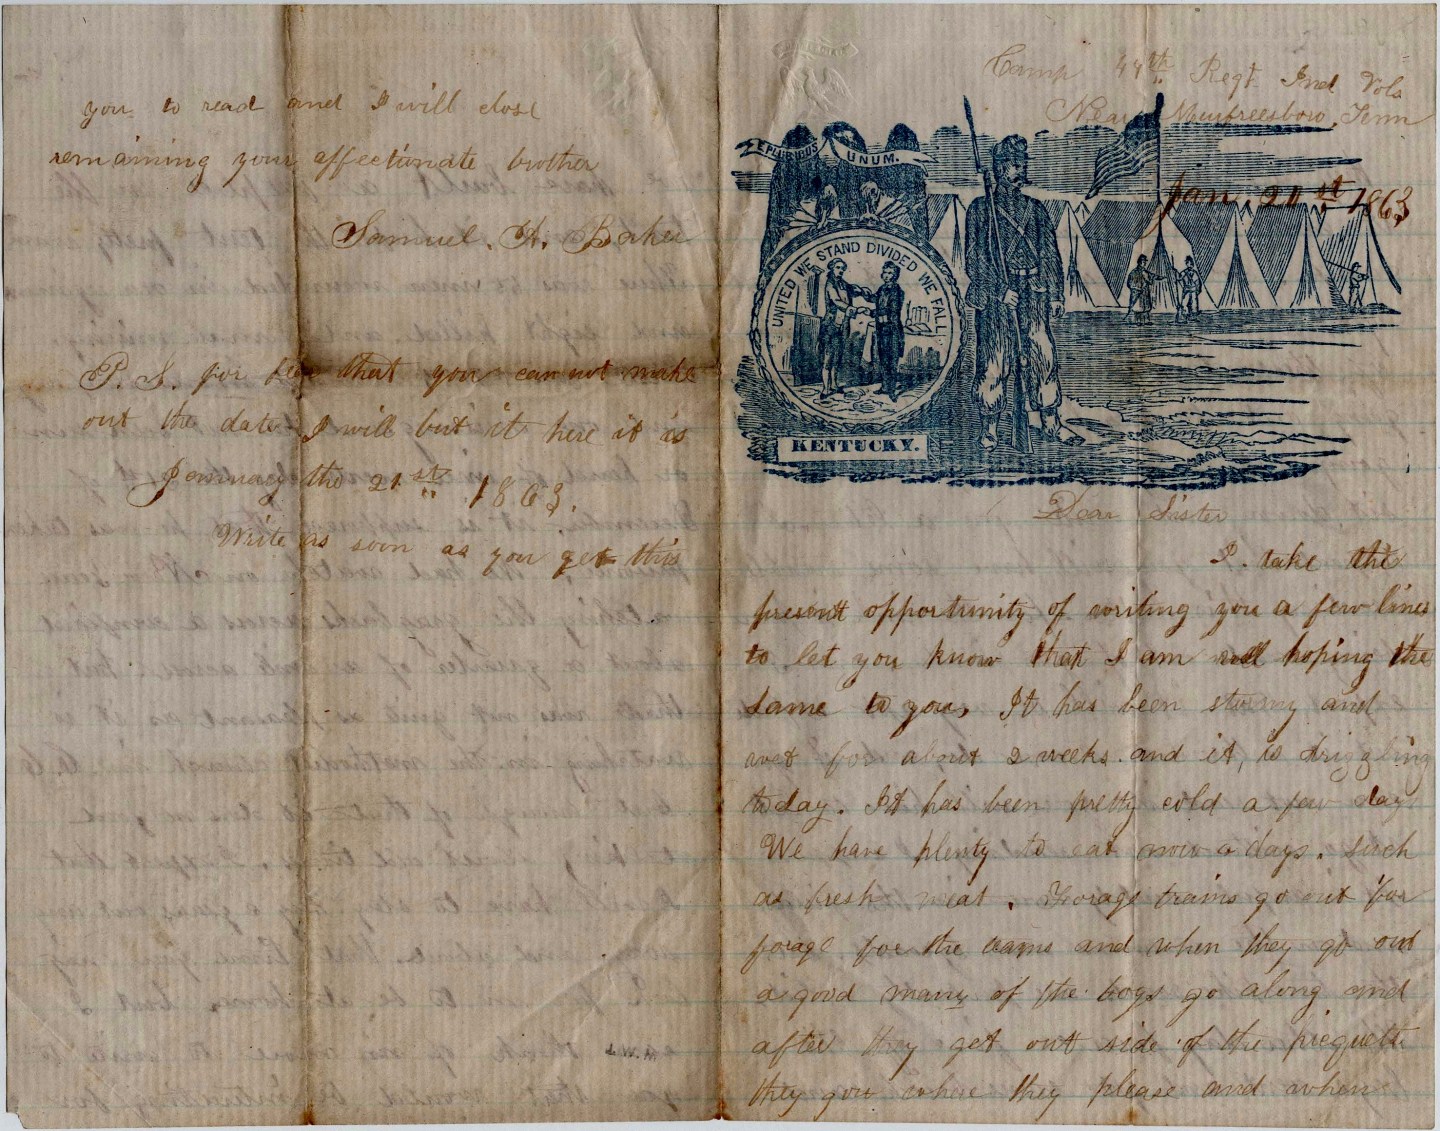 you to read and I will close
remaining your affectionate brother
Samuel. H. Baker
P. S. for fear that you can not make
out the date I will but it here it is
January the 21st 1863.
Write as soon as you get this
Camp 44th Regt Ind Vols
Near Murfreesboro, Tenn
Jan. 21st 1863
E PLURIBUS UNUM.
UNITED WE STAND DIVIDED WE FALL.
KENTUCKY.
Dear Sister
I. take the
present opportunity of writing you a few lines
to let you know that I am well hoping the
same to you, It has been stormy and
wet for about 2 weeks. and it, is drizzling
today. It has been pretty cold a few day
We have plenty to eat now a days. Such
as fresh meat. Forage trains go out for
forage for the teams and when they go out
a good many of the boys go along and
after they get out side of the piequett
they gou where they please and when